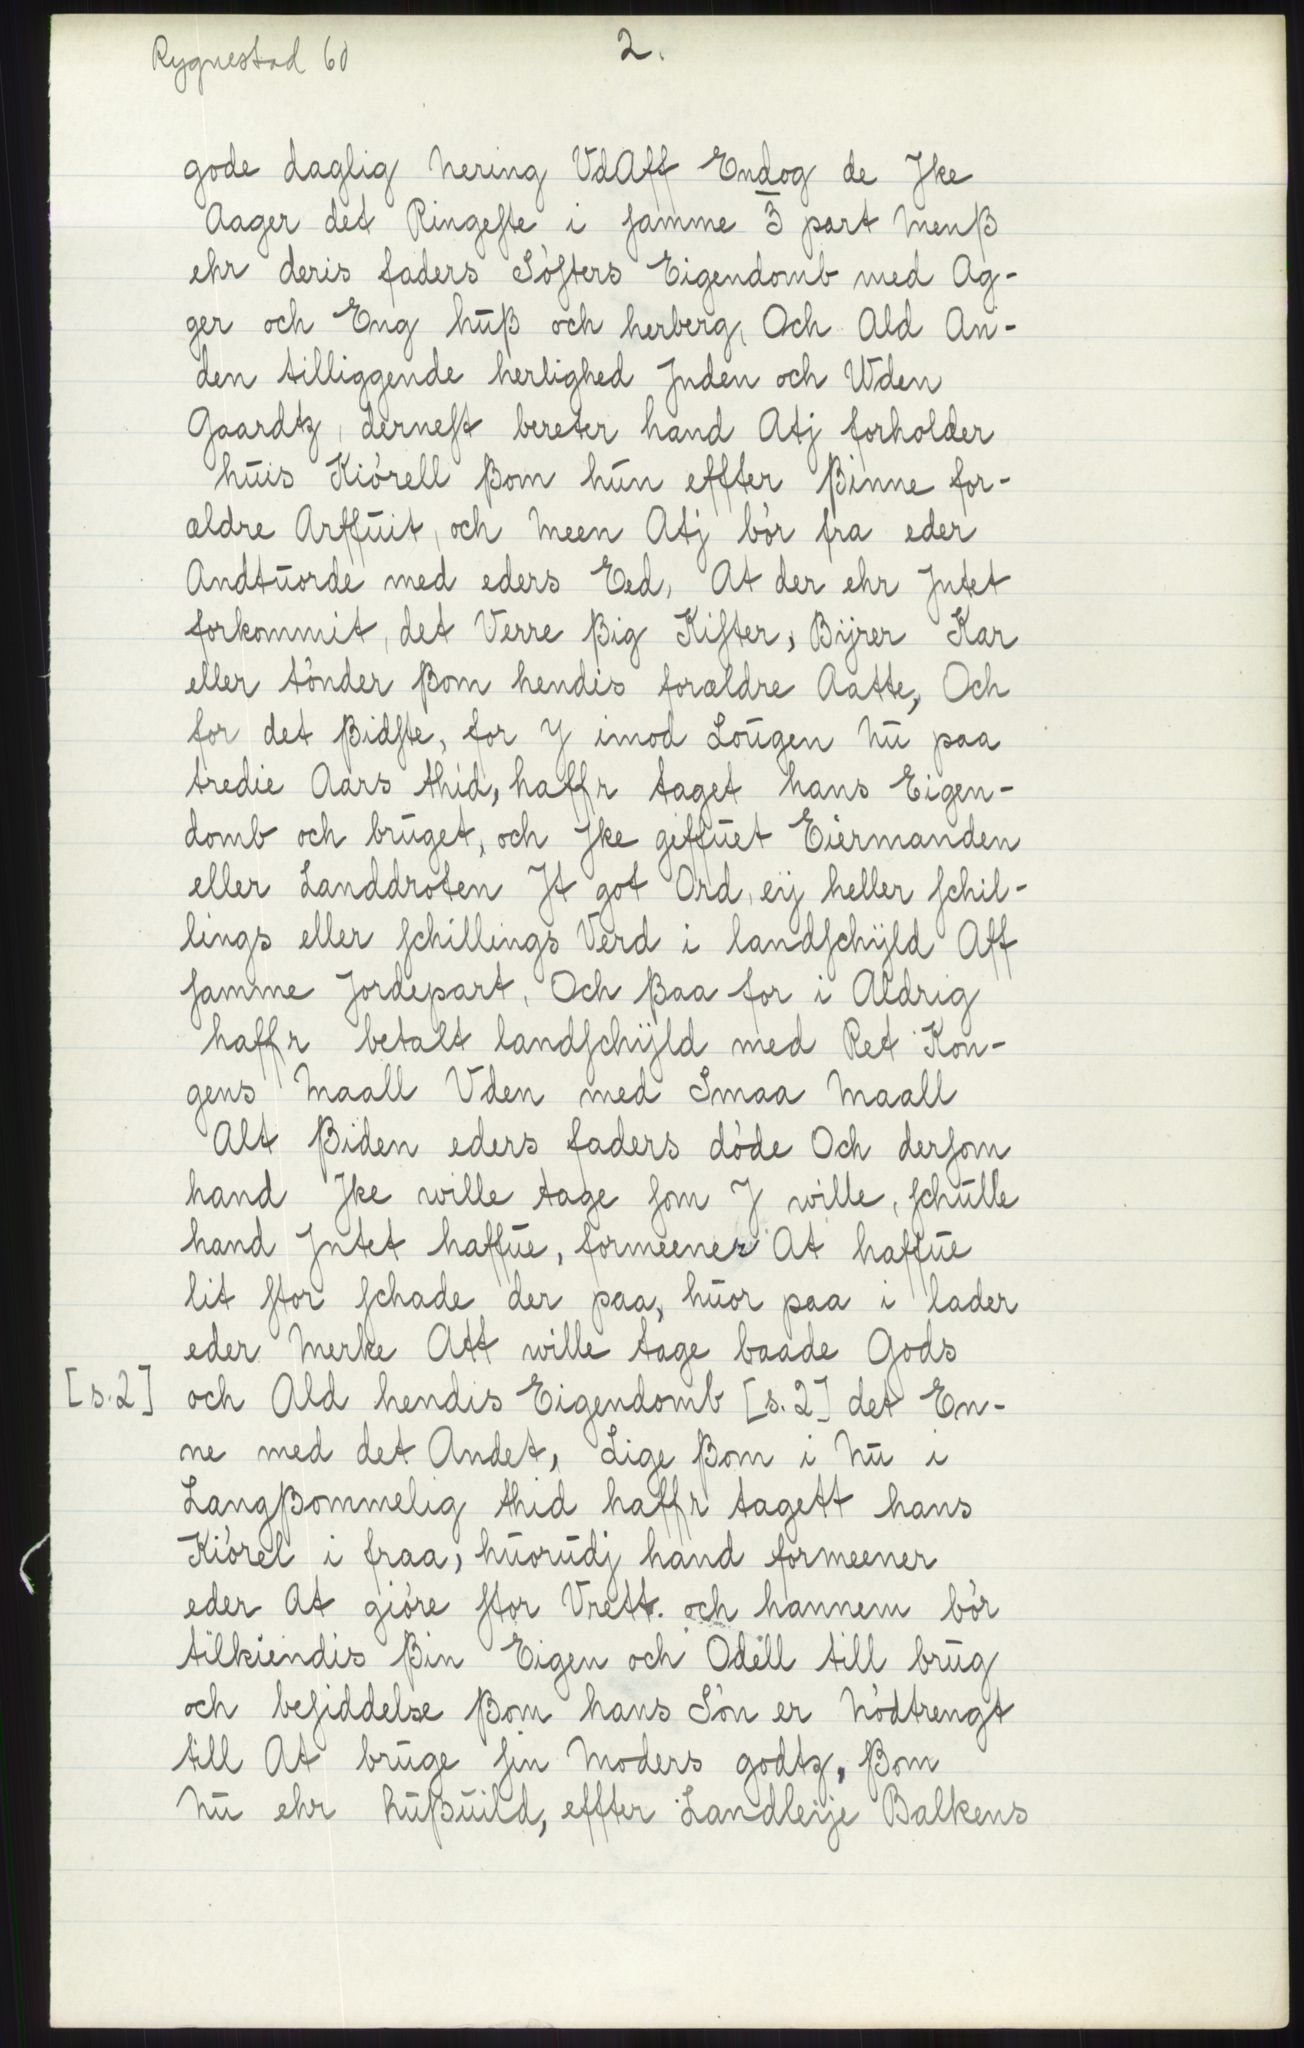 Rygnestad 60
2.
gode daglig Nering VdAff Endog de Jke
Aager det Ringeste i samme 3̅ part Menß
ehr deris faders Söfters Eigendomb med Ag-
ger och Eng hŭß och herberg, Och Ald An-
den tilliggende herlighed Jnden och Wden
Gaardtz, dernest bereter hand Atj forholder
hŭis Kiörell ßom hŭn effter ßinne for-
ældre Arffŭit, och Meen Atj bör fra eder
Andtŭorde med eders Eed, At der ehr Jntet
forkommit, det Verre ßig Kister, Bÿrer Kar
eller tönder ßom hendis forældre Aatte, Och
for det ßidste, for Y imod Loŭgen Nŭ paa
tredie Aars thid, haffr taget hans Eigen-
domb och brŭget, och Jke giffŭet Eiermanden
eller Landdroten Jt got Ord, eÿ heller schil-
lings eller schillings Verd i landschÿld Aff
samme Jordepart, Och ßaa for i Aldrig
haffr betalt landschÿld med Ret Kon-
gens Maall Vden med Smaa Maall
Alt ßiden eders faders döde Och dersom
hand Jke wille tage som J wille, schŭlle
hand Jntet haffŭe, formeener At haffŭe
lit stor schade der paa, hŭor paa i lader
eder Merke Att wille tage baade Gods
[s.2] och Ald hendis Eigendomb [s.2] det En-
ne med det Andet, Lige ßom i Nŭ i
Langßommelig thid haffr tagett hans
Kiörel i fraa, hŭorŭdj hand formeener
eder At giöre stor Vrett. och hannem bör
tilkiendis ßin Eigen och Odell till brŭg
och besiddelse ßom hans Sön er Nödtrengt
till At brŭge sin Moders godtz, ßom
Nŭ ehr hŭßŭild, effter Landleije Balkens